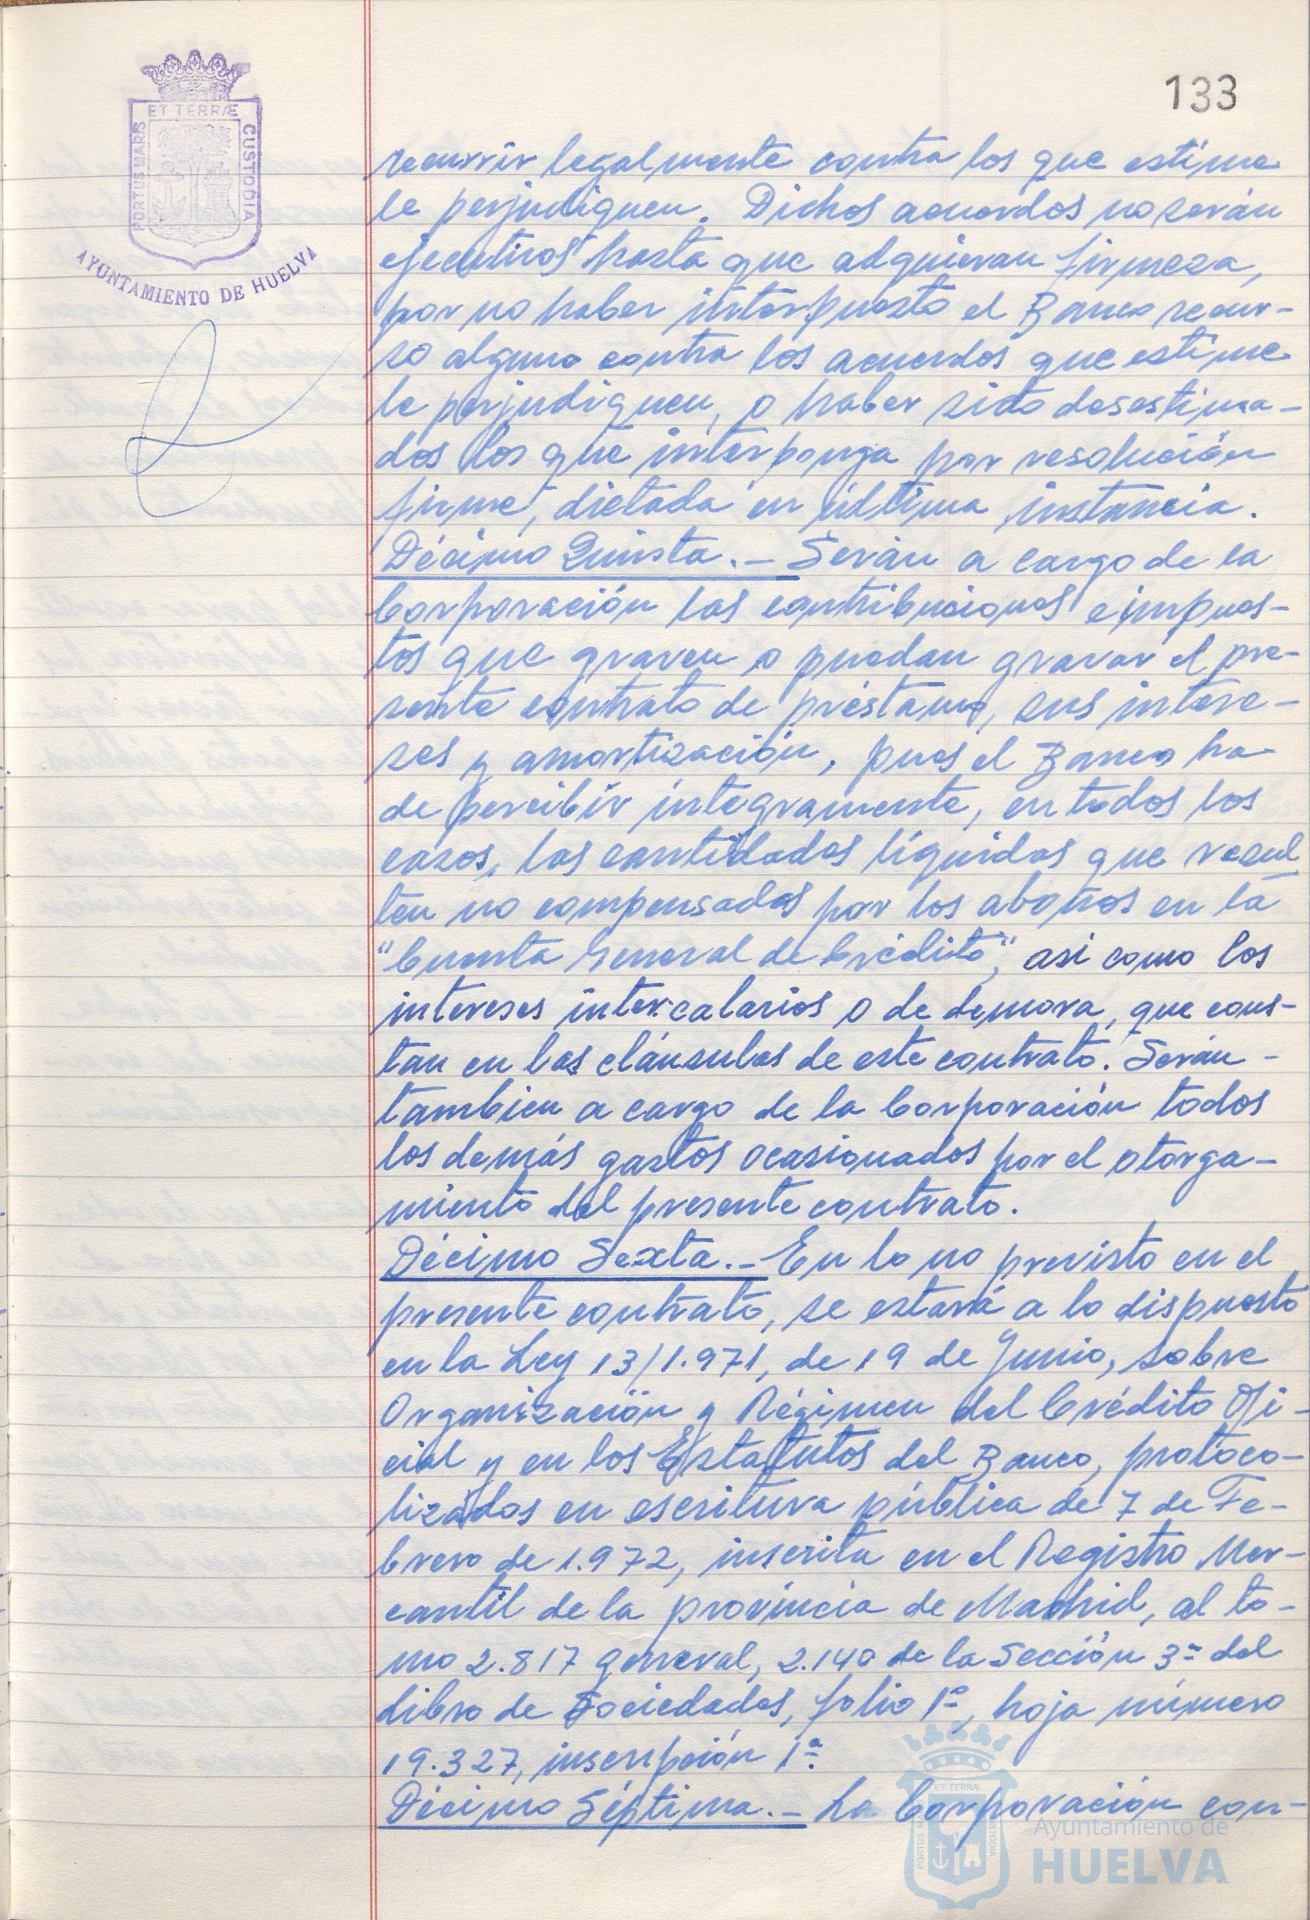 133
ET TERRÆ
PORTUS MARIS
CUSTODIA
AYUNTAMIENTO DE HUELVA
recurrir legalmente contra los que estime
le perjudiquen. Dichos acuerdos no serán
ejecutivos hasta que adquieran firmeza,
por no haber interpuesto el Banco recur-
so alguno contra los acuerdos que estime
le perjudiquen, o haber sido desestima-
dos los que interponga por resolución
firme, dictada en última instancia.
Décimo Quinta.- Serán a cargo de la
Corporación las contribuciones e impues-
tos que graven o puedan gravar el pre-
sente contrato de préstamo, sus intere-
ses y amortización, pues el Banco ha
de percibir íntegramente, en todos los
casos, las cantidades líquidas que resul
ten no compensadas por los abonos en la
"Cuenta General de Crédito", asi como los
intereses intercalarios o de demora, que cons-
tan en las cláusulas de este contrato. Serán -
tambien a cargo de la Corporación todos
los demás gastos ocasionados por el otorga-
miento del presente contrato.
Décimo Sexta.- En lo no previsto en el
presente contrato, se estará a lo dispuesto
en la Ley 13/1.971, de 19 de Junio, sobre
Organización y Régimen del Crédito Ofi-
cial y en los Estatutos del Banco, protoco-
lizados en escritura pública de 7 de Fe-
brero de 1.972, inscrita en el Registro Mer-
cantil de la provincia de Madrid, al to-
mo 2.817 general, 2.140 de la Sección 3ª del
Libro de Sociedades, folio 1º, hoja número
19.327, inscripción 1ª
Décimo Séptima.- La Corporación con-
ET TERRÆ
Ayuntamiento de
HUELVA